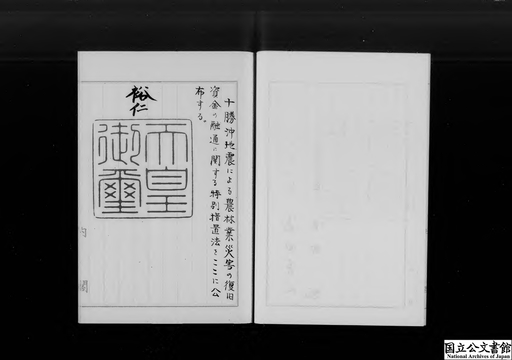 十勝沖地震による農林業災害の復旧
資金の融通に関する特別措置法をここに公
布する。
裕仁
天皇
御璽
内閣
国立公文書館
National Archives of Japan